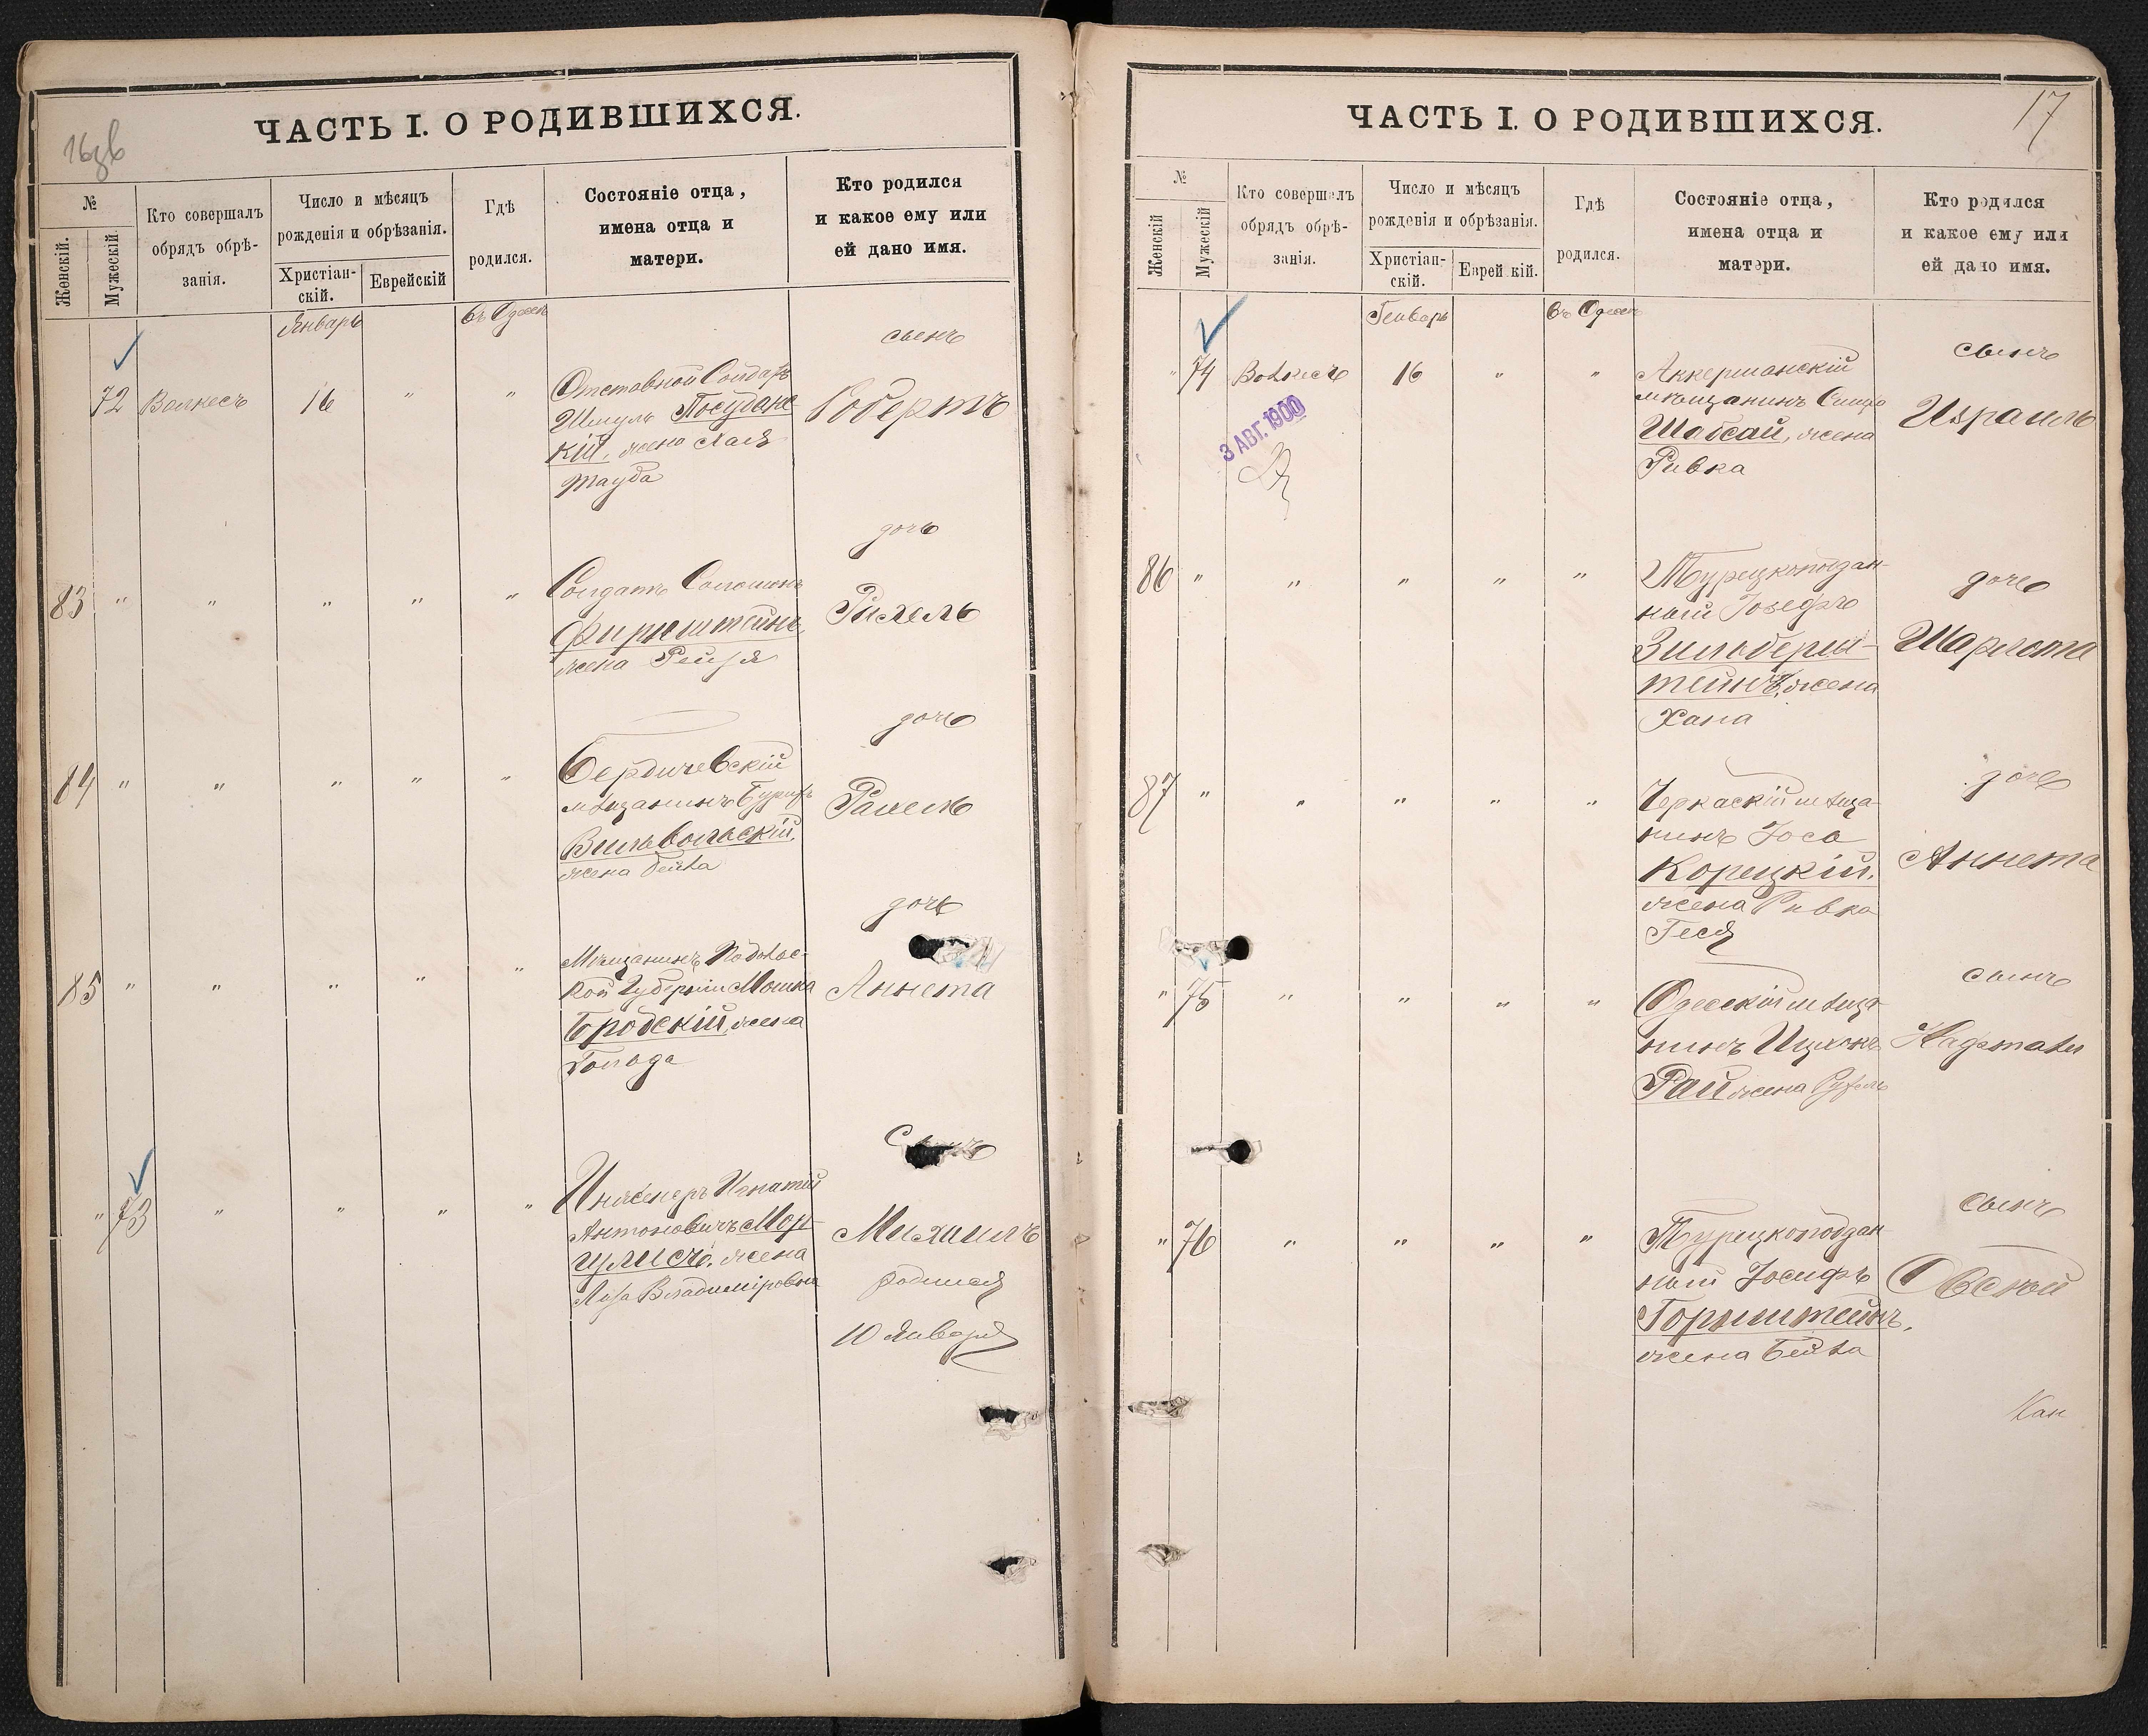 16 зв
ЧАСТЬ I. О РОДИВШИХСЯ.
№
Женскій.
Мужескій
Кто совершалъ
обрядъ обрѣ-
занія.
Число и мѣсяцъ
рожденія и обрѣзанія.
Христіан-
скій.
Еврейскій
Гдѣ
родился.
Состояніе отца,
имена отца и
матери.
Кто родился
и какое ему или
ей дано имя.
Январь
въ Одессѣ
сынъ
72 Волкесъ 16 " "
Отставной Солдатъ
Шмуль Посуданс
кій, жена Хая
Тауба
Робертъ
дочь
83 " " " " "
Солдатъ Соломонъ
Фирюштейнъ,
жена Рейзя
Рихель
дочь
84 " " " " "
Бердичевскій
мѣщанинъ
Вильвольскій,
жена Бейла
Рахель
дочь
85 " " " " "
Мѣщанинъ Подоль-
кой Губерніи Мошка
Бродскій, жена
Голода
Аннета
Сынъ
" 73 " " " "
Инженеръ Игнатій
Антоновичъ Мар-
гулисъ, жена
Лиза Владиміровна
Михаилъ
родился
10 Января
17
ЧАСТЬ I. О РОДИВШИХСЯ.
№
Женскій
Мужескій
Кто совершалъ
обрядъ обрѣ-
занія.
Число и мѣсяцъ
рожденія и обрѣзанія.
Христіан-
скій.
Еврей кій.
Гдѣ
родился.
Состояніе отца,
имена отца и
матери.
Кто родился
и какое ему или
ей дано имя.
Генварь
въ Одессѣ
сынъ
" 74 Волкесъ 16 " "
3 АВГ. 1900
Аккерманскій
мѣщанинъ Симха
Шабсай, жена
Ривка
Израиль
86 " " " " "
Турецкоподан-
ный Іозефъ
Зильберш-
тейнъ, жена
Хана
дочь
Шарлота
дочь
87 " " " " "
Черкаскій мѣща-
нинъ Іося
Корецкій,
жена Ривка
Геся
Аннета
сынъ
" 75 " " " "
Одесскій мѣща
нинъ Ицхокъ
Рай жена Рухель
Нафтали
сынъ
" 76 " " " "
Турецкоподан
ный Іосифъ
Горнштейнъ,
жена Бейла
Овсій
Кан